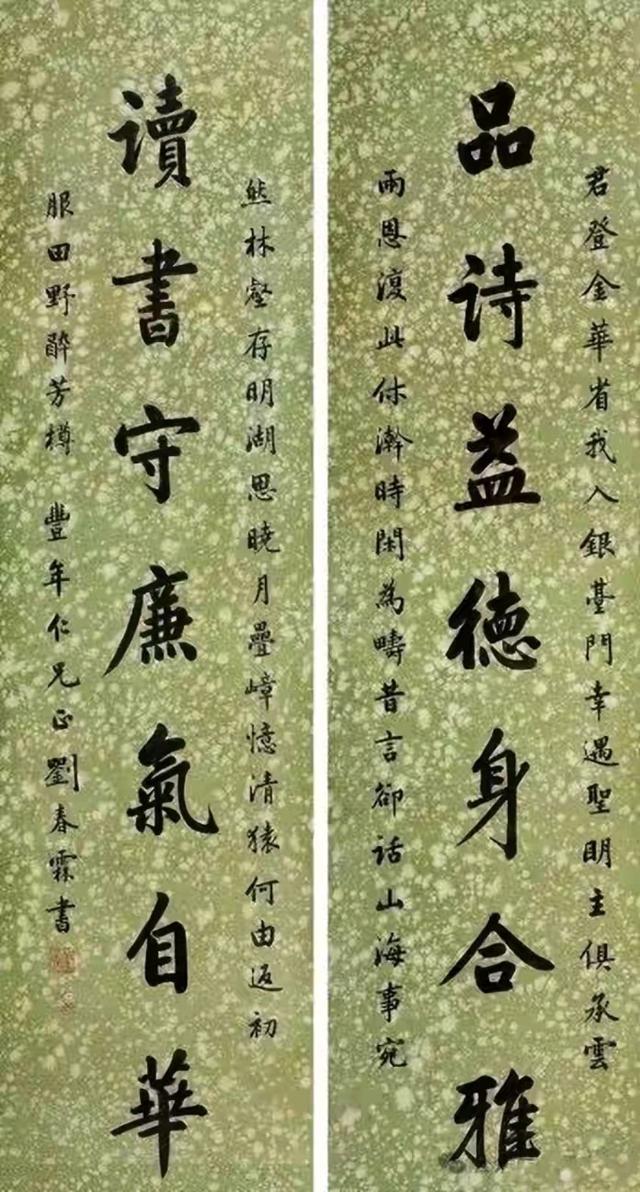 君登金華省我入銀臺門幸遇聖明主俱承雲
品詩益德身合雅
雨恩復此休瀚時閑為疇昔言卻話山海事宛
然林壑存明湖思曉月疊嶂憶清猿何由返初
讀書守廉氣自華
服田野醉芳樽 豐年仁兄正劉春霖書